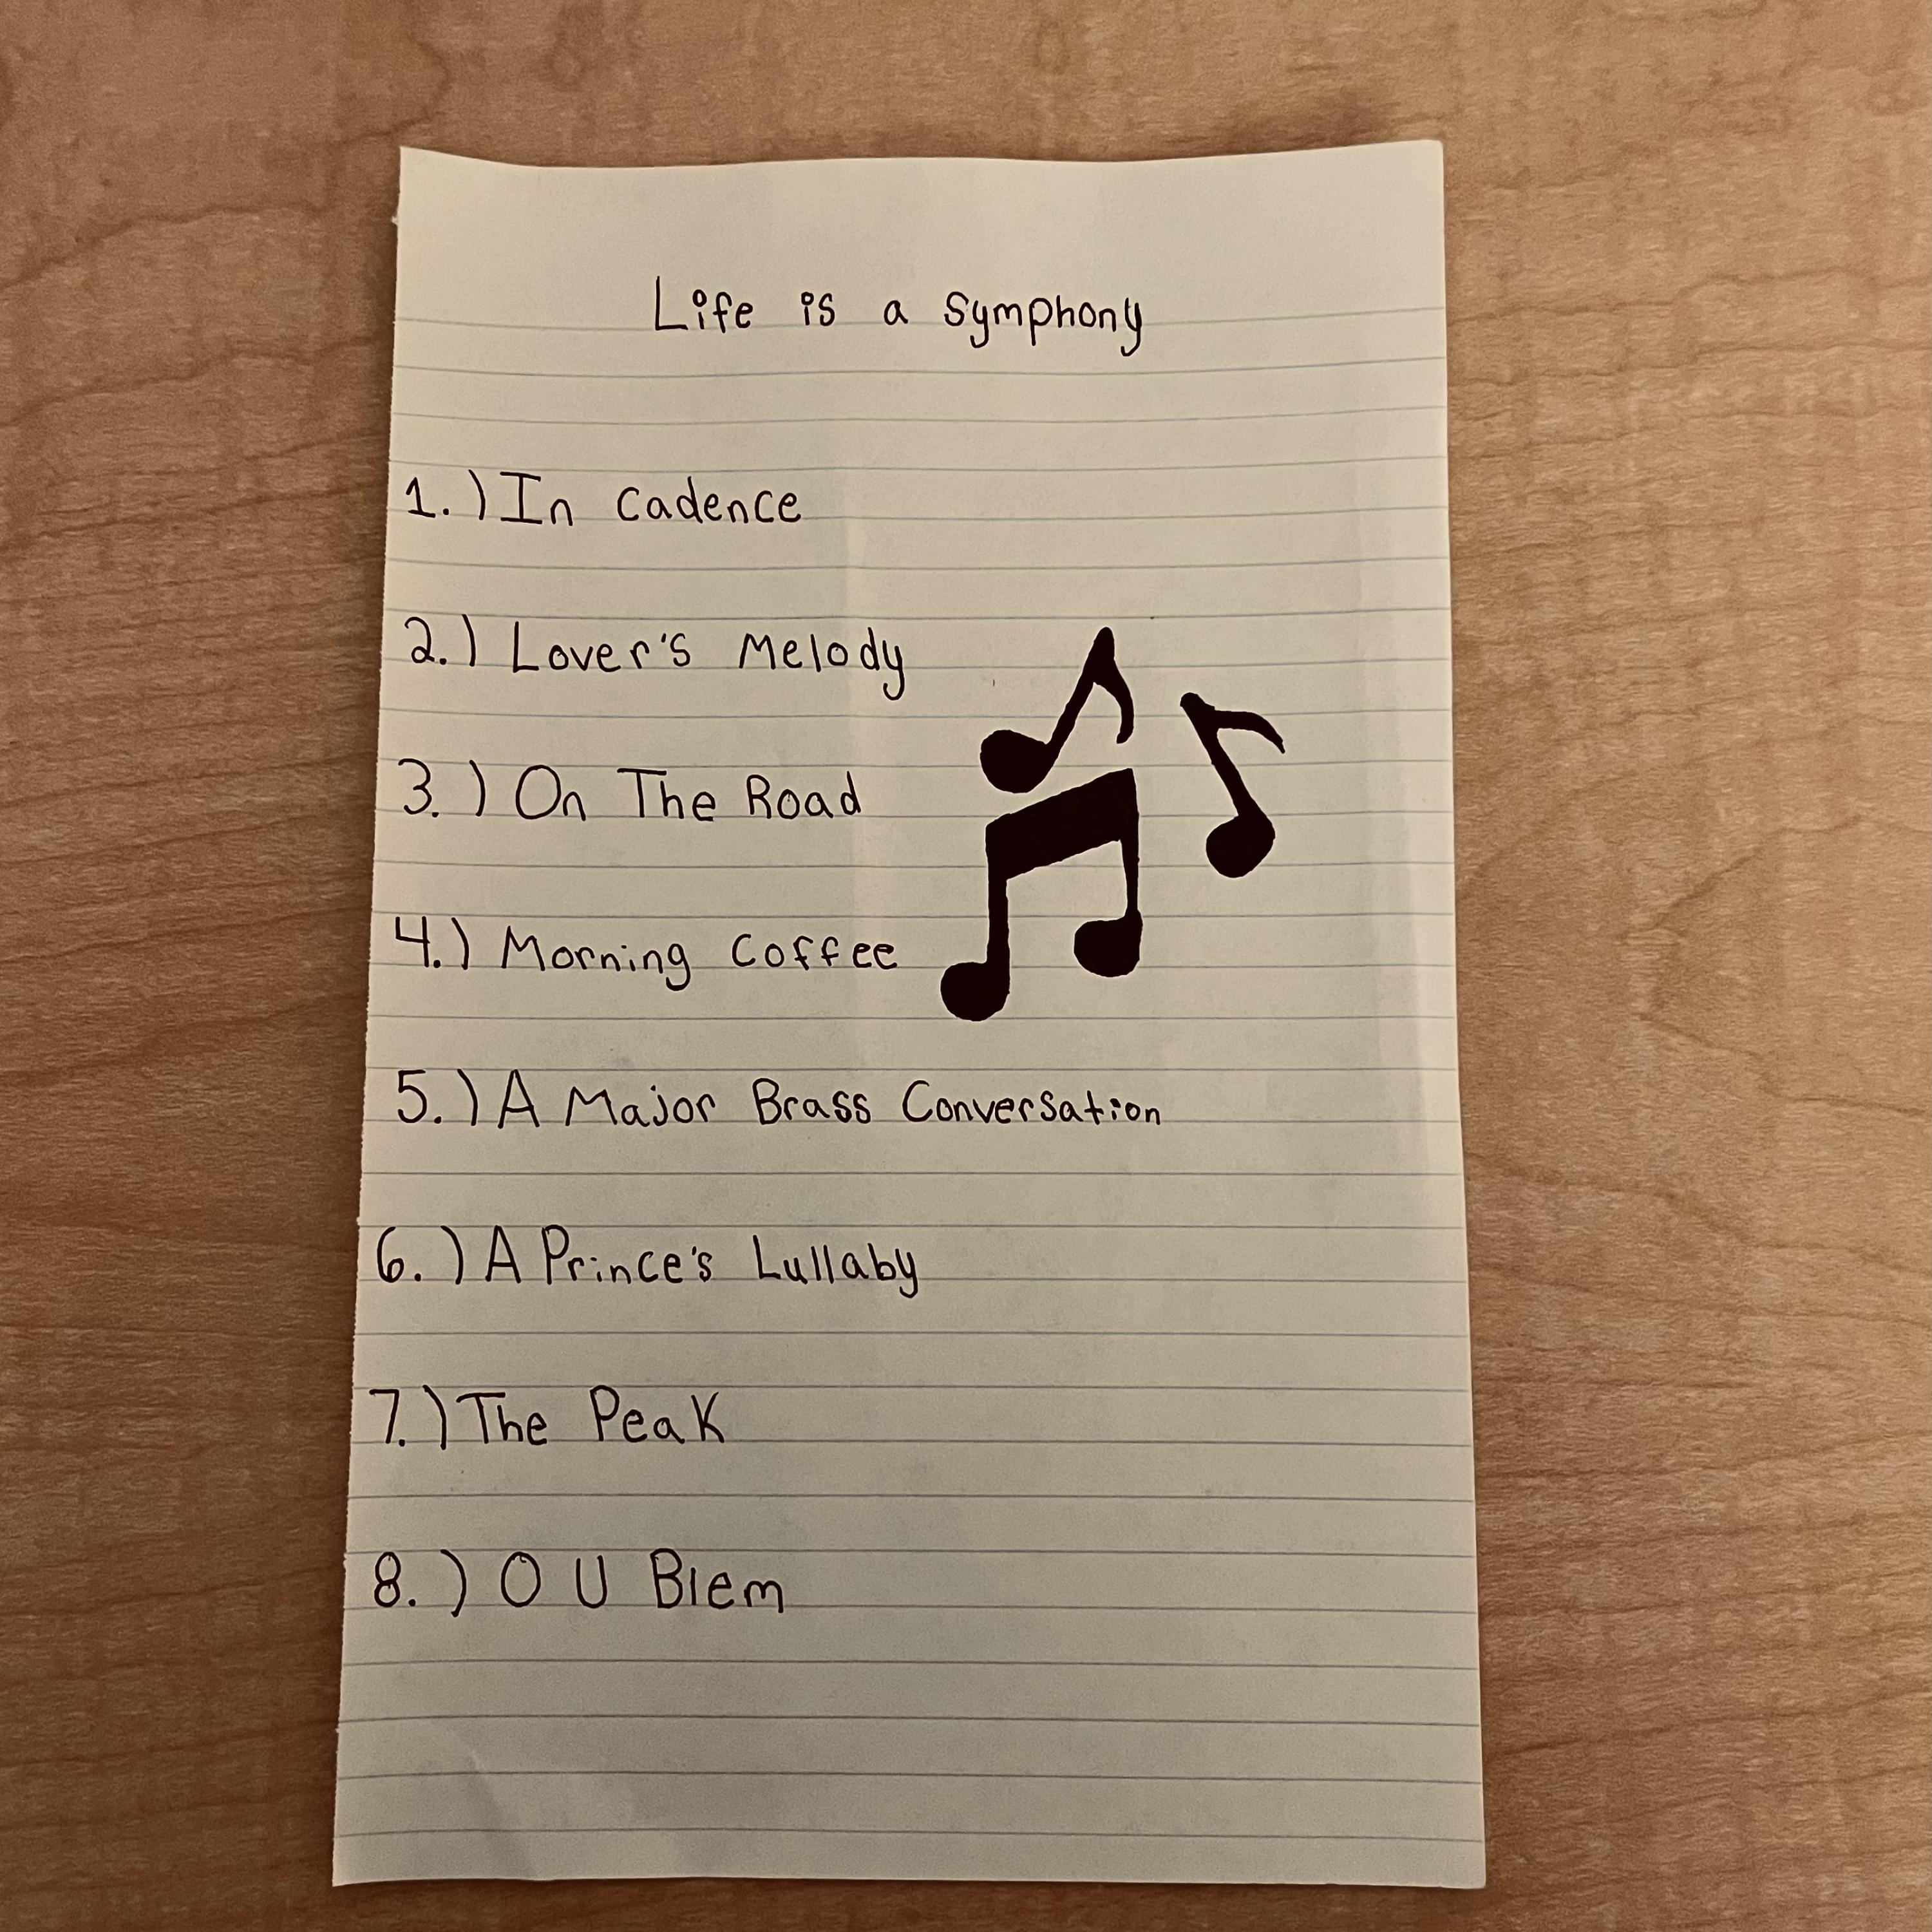 Life is a Symphony
1.) In Cadence
2.) Lover's Melody
3.) On The Road
4.) Morning Coffee
5.) A Major Brass Conversation
6.) A Prince's Lullaby
7.) The Peak
8.) O U Blem